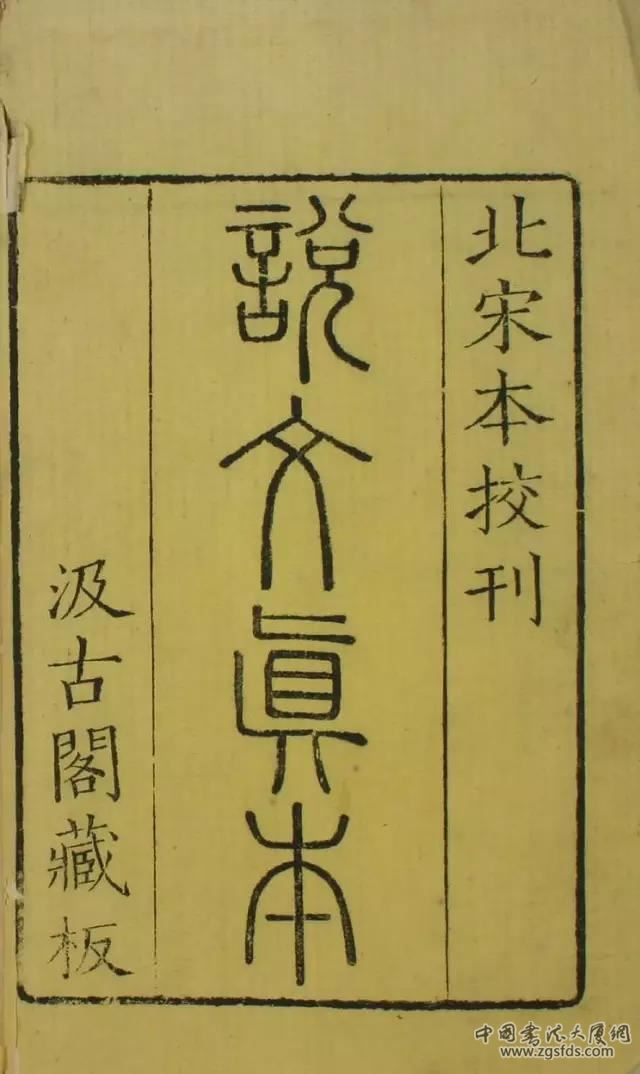 北宋本挍刊
說文眞本
汲古閣藏板
中国书法大厦網
www.zgsfds.com